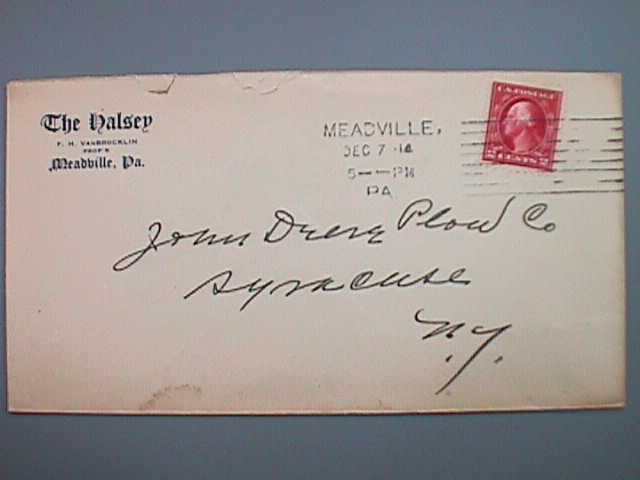 The Halsey
F. H. VANBROCKLIN
PROP'R
Meadville, Pa.
MEADVILLE,
DEC 7 '14
5--PM
PA
U.S. POSTAGE
2 CENTS 2
John Deere Plow Co
Syracuse
N.Y.